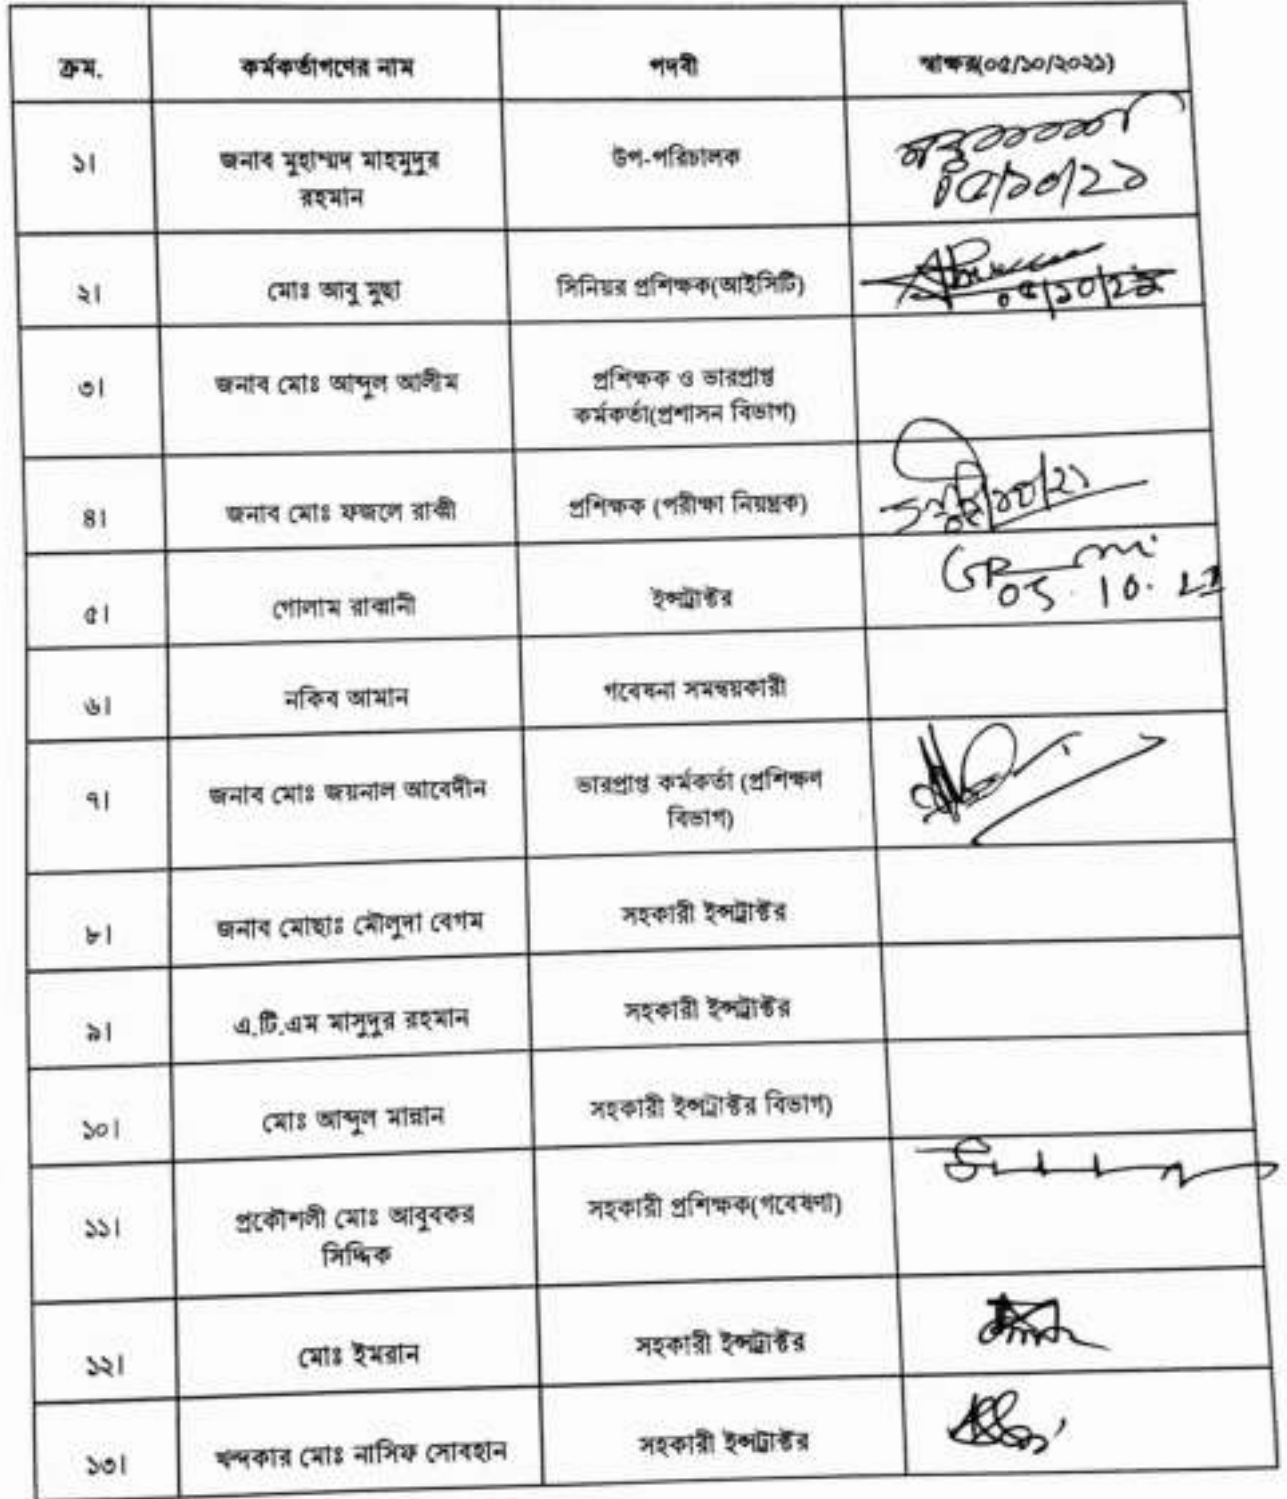 ক্রম. কর্মকর্তাগণের নাম পদবী স্বাক্ষর(০৫/১০/২০২১)
১। জনাব মুহাম্মদ মাহমুদুর উপ-পরিচালক
রহমান
০৫/১০/২১
২। মোঃ আবু মুছা সিনিয়র প্রশিক্ষক(আইসিটি)
০৫/১০/২১
৩। জনাব মোঃ আব্দুল আলীম প্রশিক্ষক ও ভারপ্রাপ্ত
কর্মকর্তা(প্রশাসন বিভাগ)
৪। জনাব মোঃ ফজলে রাব্বী প্রশিক্ষক (পরীক্ষা নিয়ন্ত্রক)
০৫/১০/২১
৫। গোলাম রাব্বানী ইন্সট্রাক্টর
05.10.21
৬। নকিব আমান গবেষনা সমন্বয়কারী
৭। জনাব মোঃ জয়নাল আবেদীন ভারপ্রাপ্ত কর্মকর্তা (প্রশিক্ষণ
বিভাগ)
৮। জনাব মোছাঃ মৌলুদা বেগম সহকারী ইন্সট্রাক্টর
৯। এ.টি.এম মাসুদুর রহমান সহকারী ইন্সট্রাক্টর
১০। মোঃ আব্দুল মান্নান সহকারী ইন্সট্রাক্টর বিভাগ)
১১। প্রকৌশলী মোঃ আবুবকর সহকারী প্রশিক্ষক(গবেষণা)
সিদ্দিক
১২। মোঃ ইমরান সহকারী ইন্সট্রাক্টর
১৩। খন্দকার মোঃ নাসিফ সোবহান সহকারী ইন্সট্রাক্টর